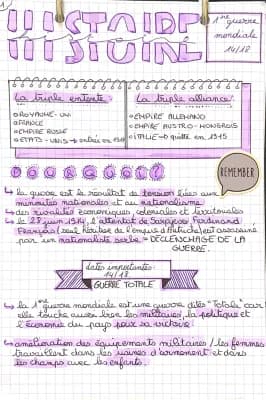 1
HISTOIRE
histoire
1ère guerre
mondiale
14/18
La triple entente:
ROYAUME-UNI
FRANCE
EMPIRE RUSSE
ETATS-UNIS → entrée en 1917
La triple alliance:
EMPIRE ALLEMAND
EMPIRE AUSTRO-HONGROIS
ITALIE → quitte en 1915
POURQUOI?
REMEMBER
↳ la guerre est le résultat de tension liées aux
minorités nationales et au nationalisme
↳ des rivalités économiques, coloniales et territoriales
↳ le 28 juin 1914, l'attentat de l'archiduc Ferdinand
François (seul héritier de l'empire d'Autriche) est assassiné
par un nationaliste serbe = DÉCLENCHAGE DE LA
GUERRE.
dates importantes:
14/18
GUERRE TOTALE
↳ la 1ère guerre mondiale est une guerre dite "Totale" car
elle touche aussi bien les militaires, la politique et
l'économie du pays pour sa victoire.
↳ amélioration des équipements militaires / les femmes
travaillent dans les usines d'armement et dans
les champs avec les enfants.